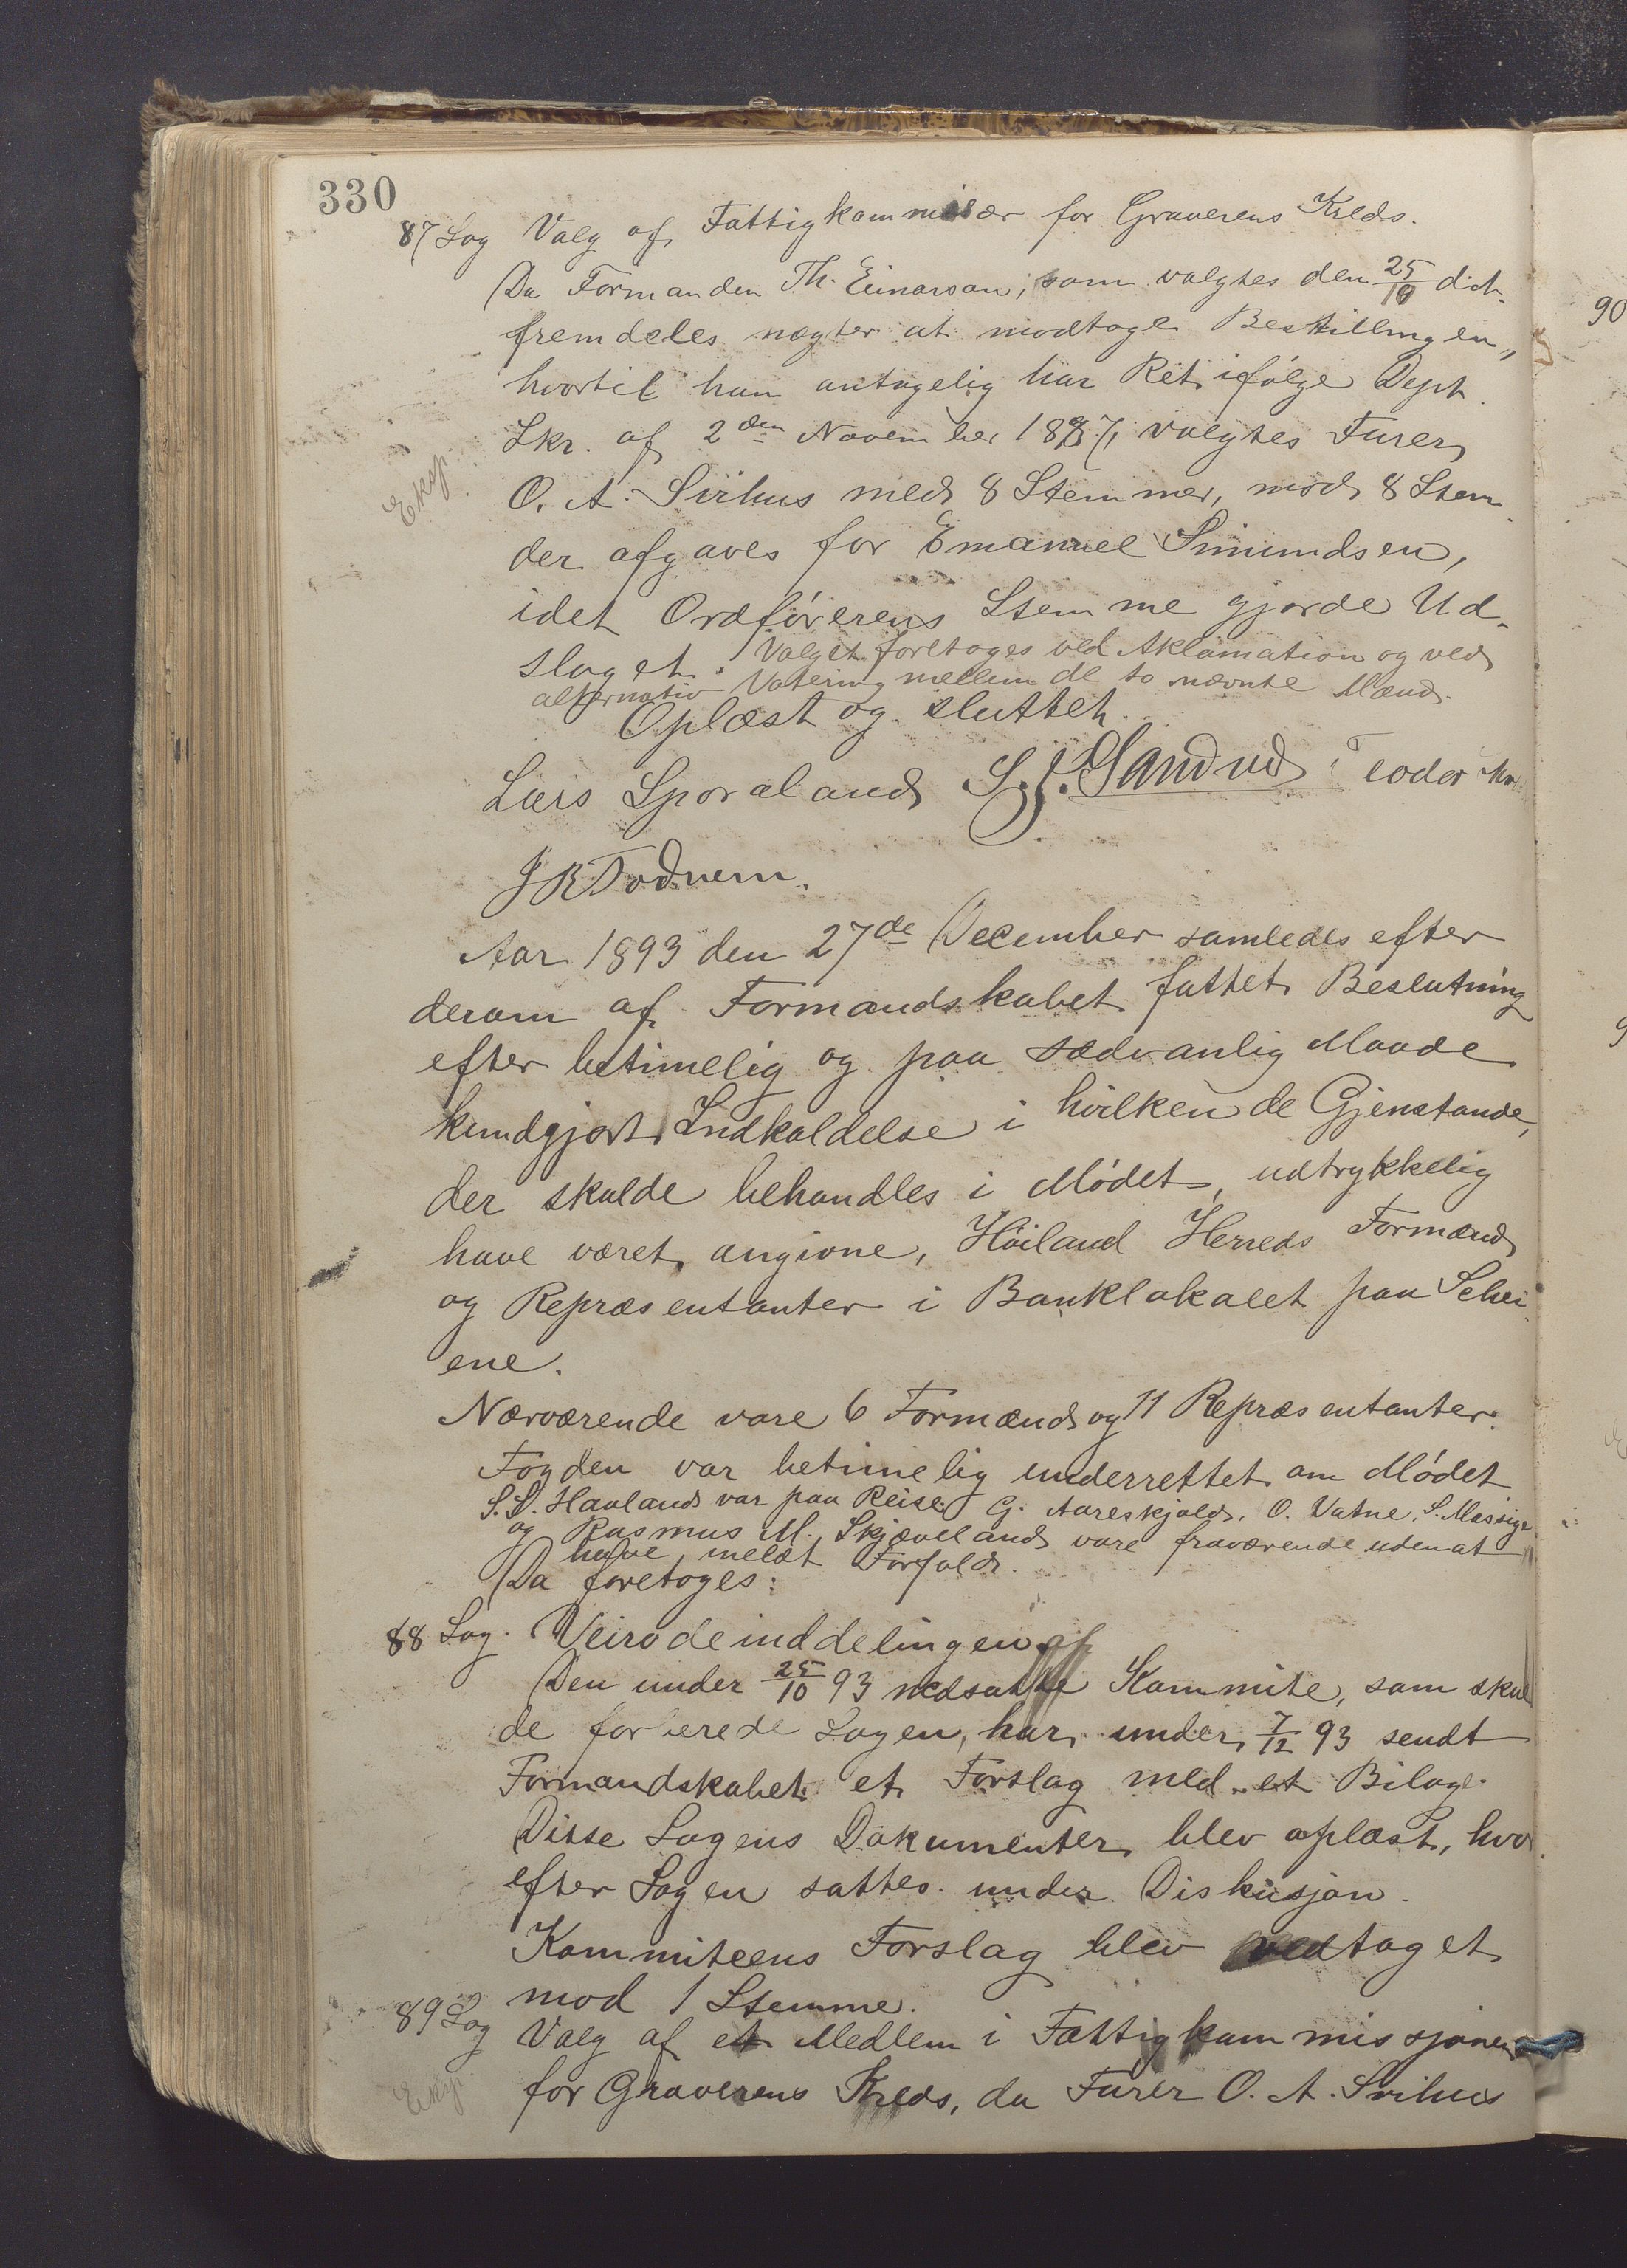 330
87 Sag Valg af Fattigkommisær for Graverens Kreds.
Da Formanden Th. Einarson, som valgtes den 25/10 d.å.
fremdeles nægter at modtage Bestillingen,
hvortil han antagelig har Ret ifølge Dept.
Skr. af 2den November 1871, valgtes Furer
Eksp.
O. A. Svihus med 8 Stemmer, mod 8 Stem.
der afgaves for Emanuel Simundsen,
idet Ordførerens Stemme gjorde Ud-
slaget. Valget foretoges ved Aklamation og ved
alternativ Votering mellem de to nævnte Mænd.
Oplæst og sluttet.
Lars Sporaland S. J. Sandved Teodor
J R Todnem.
Aar 1893 den 27de December samledes efter
derom af Formandskabet fattet Beslutning
efter betimelig og paa sædvanlig Maade
kundgjort Indkaldelse i hvilken de Gjenstande,
der skulde behandles i Mødet, udtrykkelig
have været angivne, Høiland Herreds Formænd
og Repræsentanter i Banklokalet paa Schei-
ene.
Nærværende vare 6 Formænd og 11 Repræsentanter.
Fogden var betimelig underrettet om Mødet
S. S. Hauland var paa Reise. G. Aareskjold, O. Vatne, S. Massige
og Rasmus M. Skjæveland vare fraværende uden at
have meldt Forfald.
Da foretoges:
88 Sag. Veirodeinddelingen
Den under 25/10 93 nedsatte Kommite, som skul
de forberede Sagen, har under 7/12 93 sendt
Formandskabet et Forslag med et Bilag.
Disse Sagens Dokumenter blev oplæst, hvor-
efter Sagen sattes under Diskusjon.
Kommiteens Forslag blev vedtaget
mod 1 Stemme.
89 Sag Valg af et Medlem i Fattigkommissjonen
Eksp.
for Graverens Kreds, da Furer O. A. Svihus
90